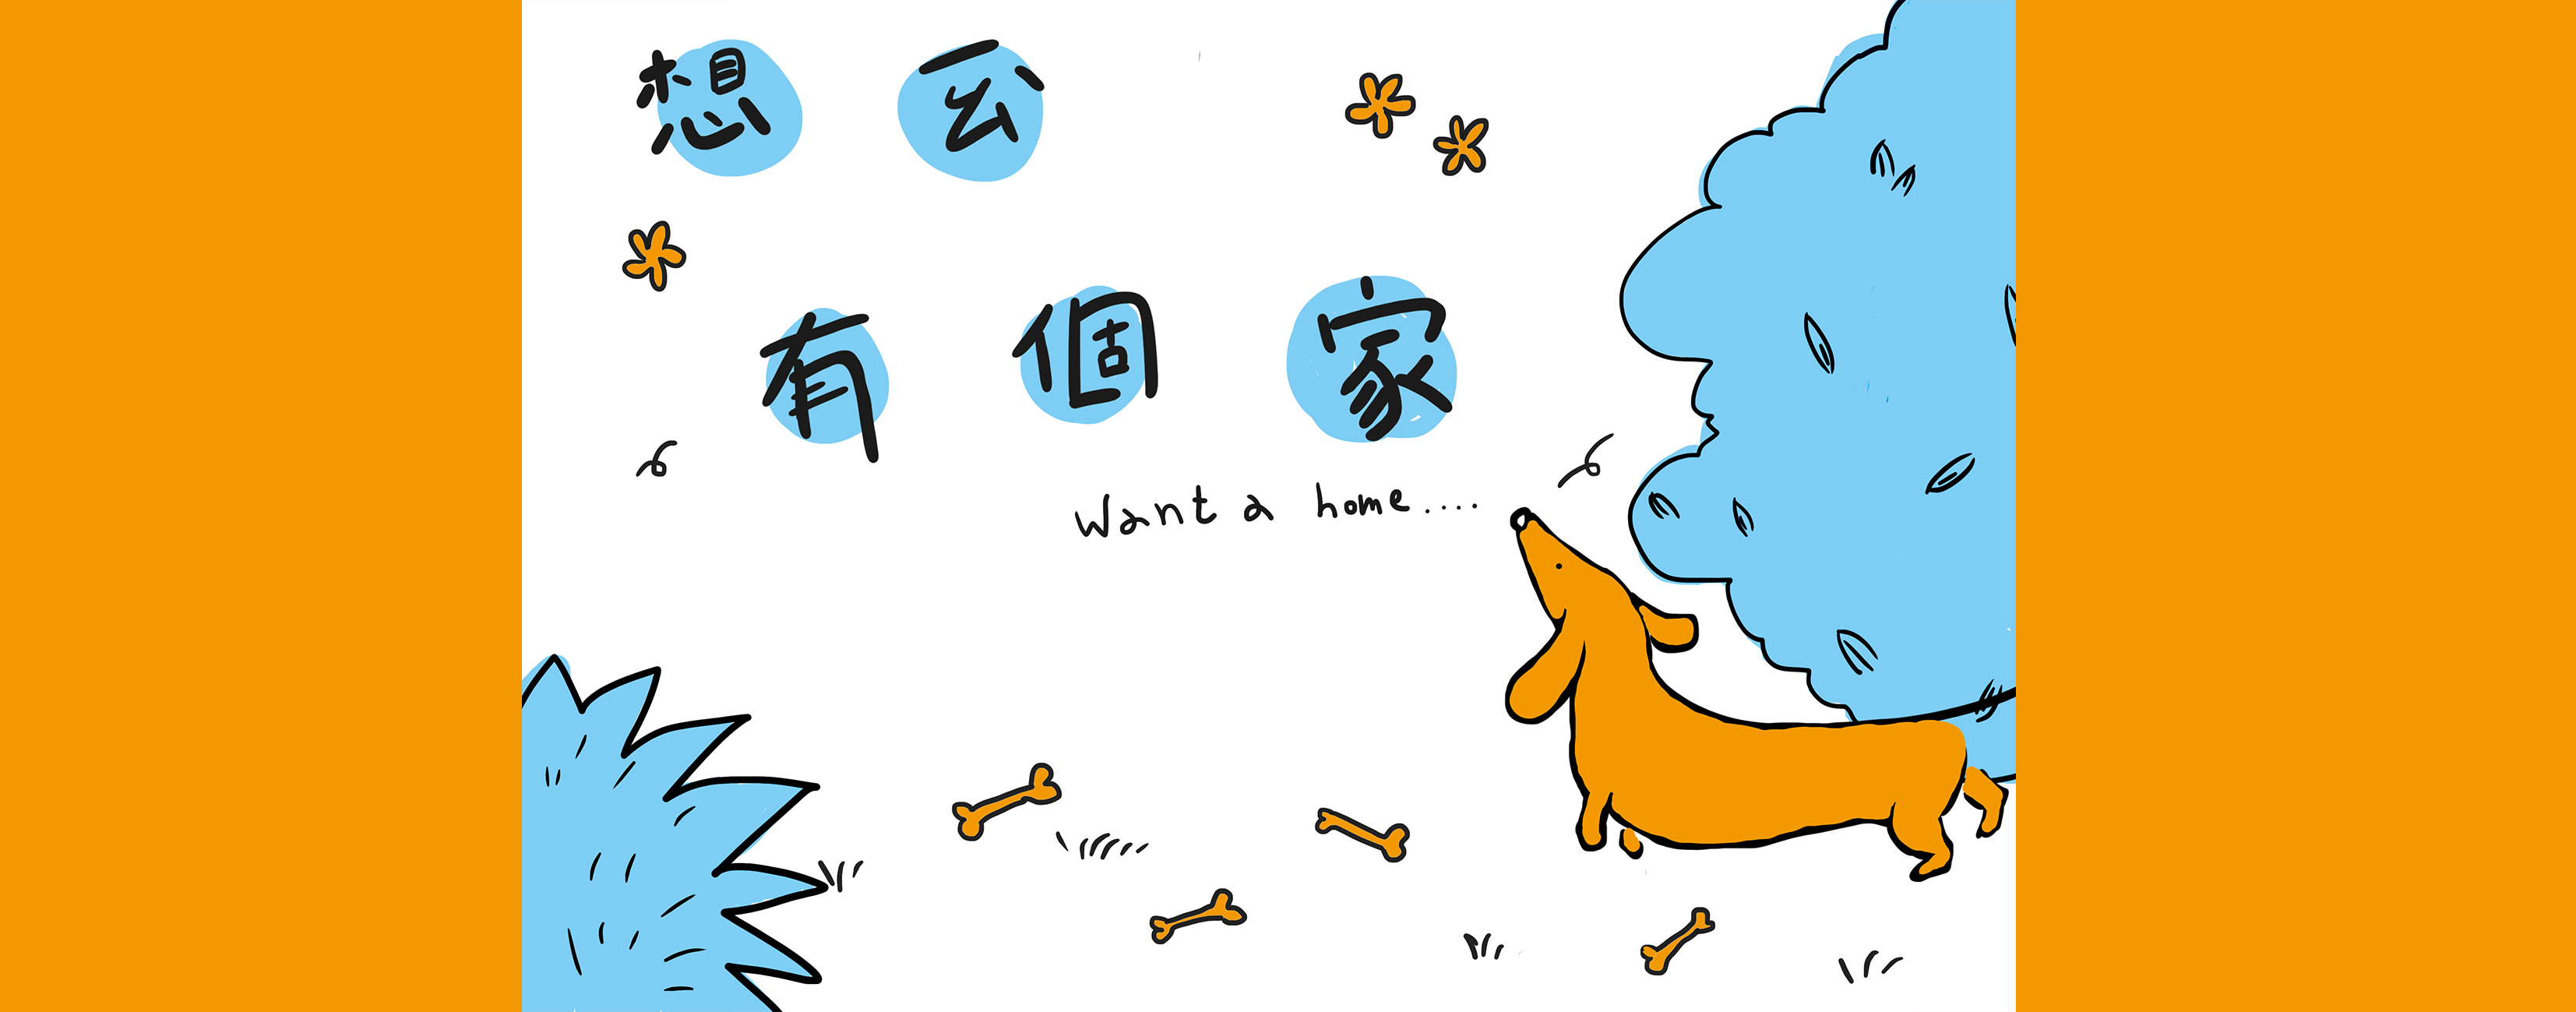 想玄
有個家
Want a home....